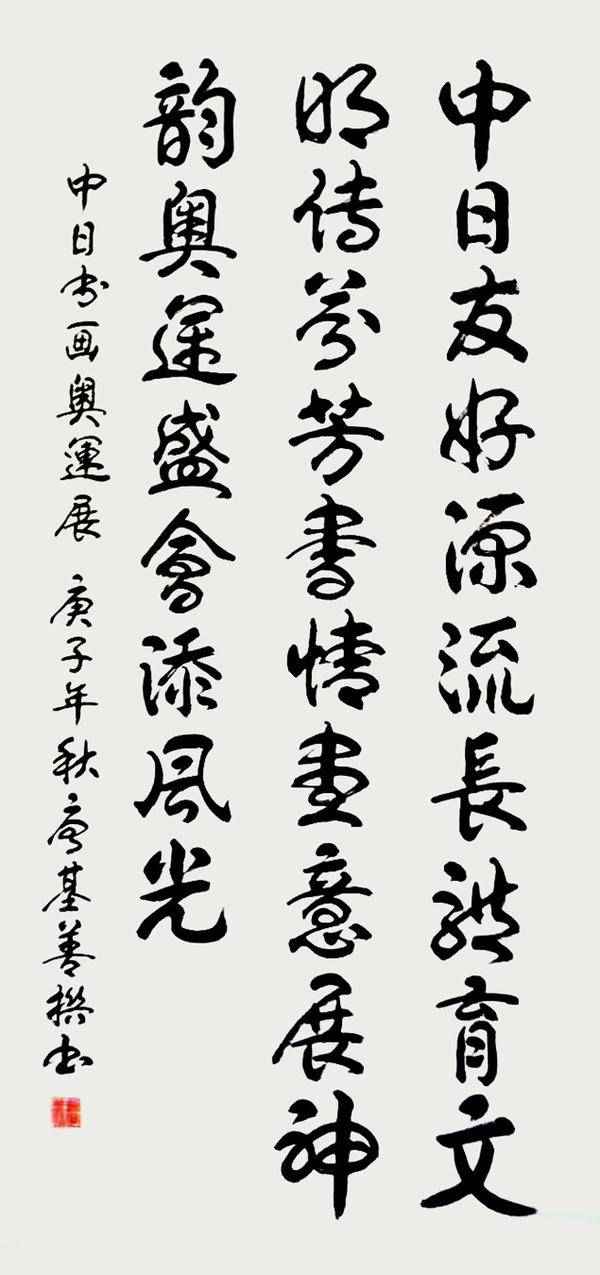 中日友好源流長體育文
明传芬芳書情畫意展神
韵奧運盛會添風光
中日书画奧運展 庚子年秋基善撰书